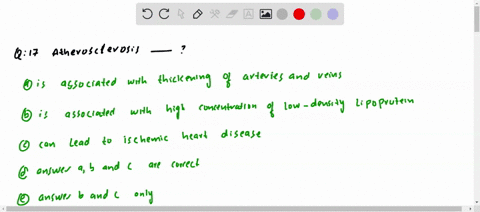 Q:17 Atherosclerosis — ?
(a) is associated with thickening of arteries and veins
(b) is associated with high concentration of low-density lipoprotein
(c) can lead to ischemic heart disease
(d) answer a, b and c are correct
(e) answer b and c only